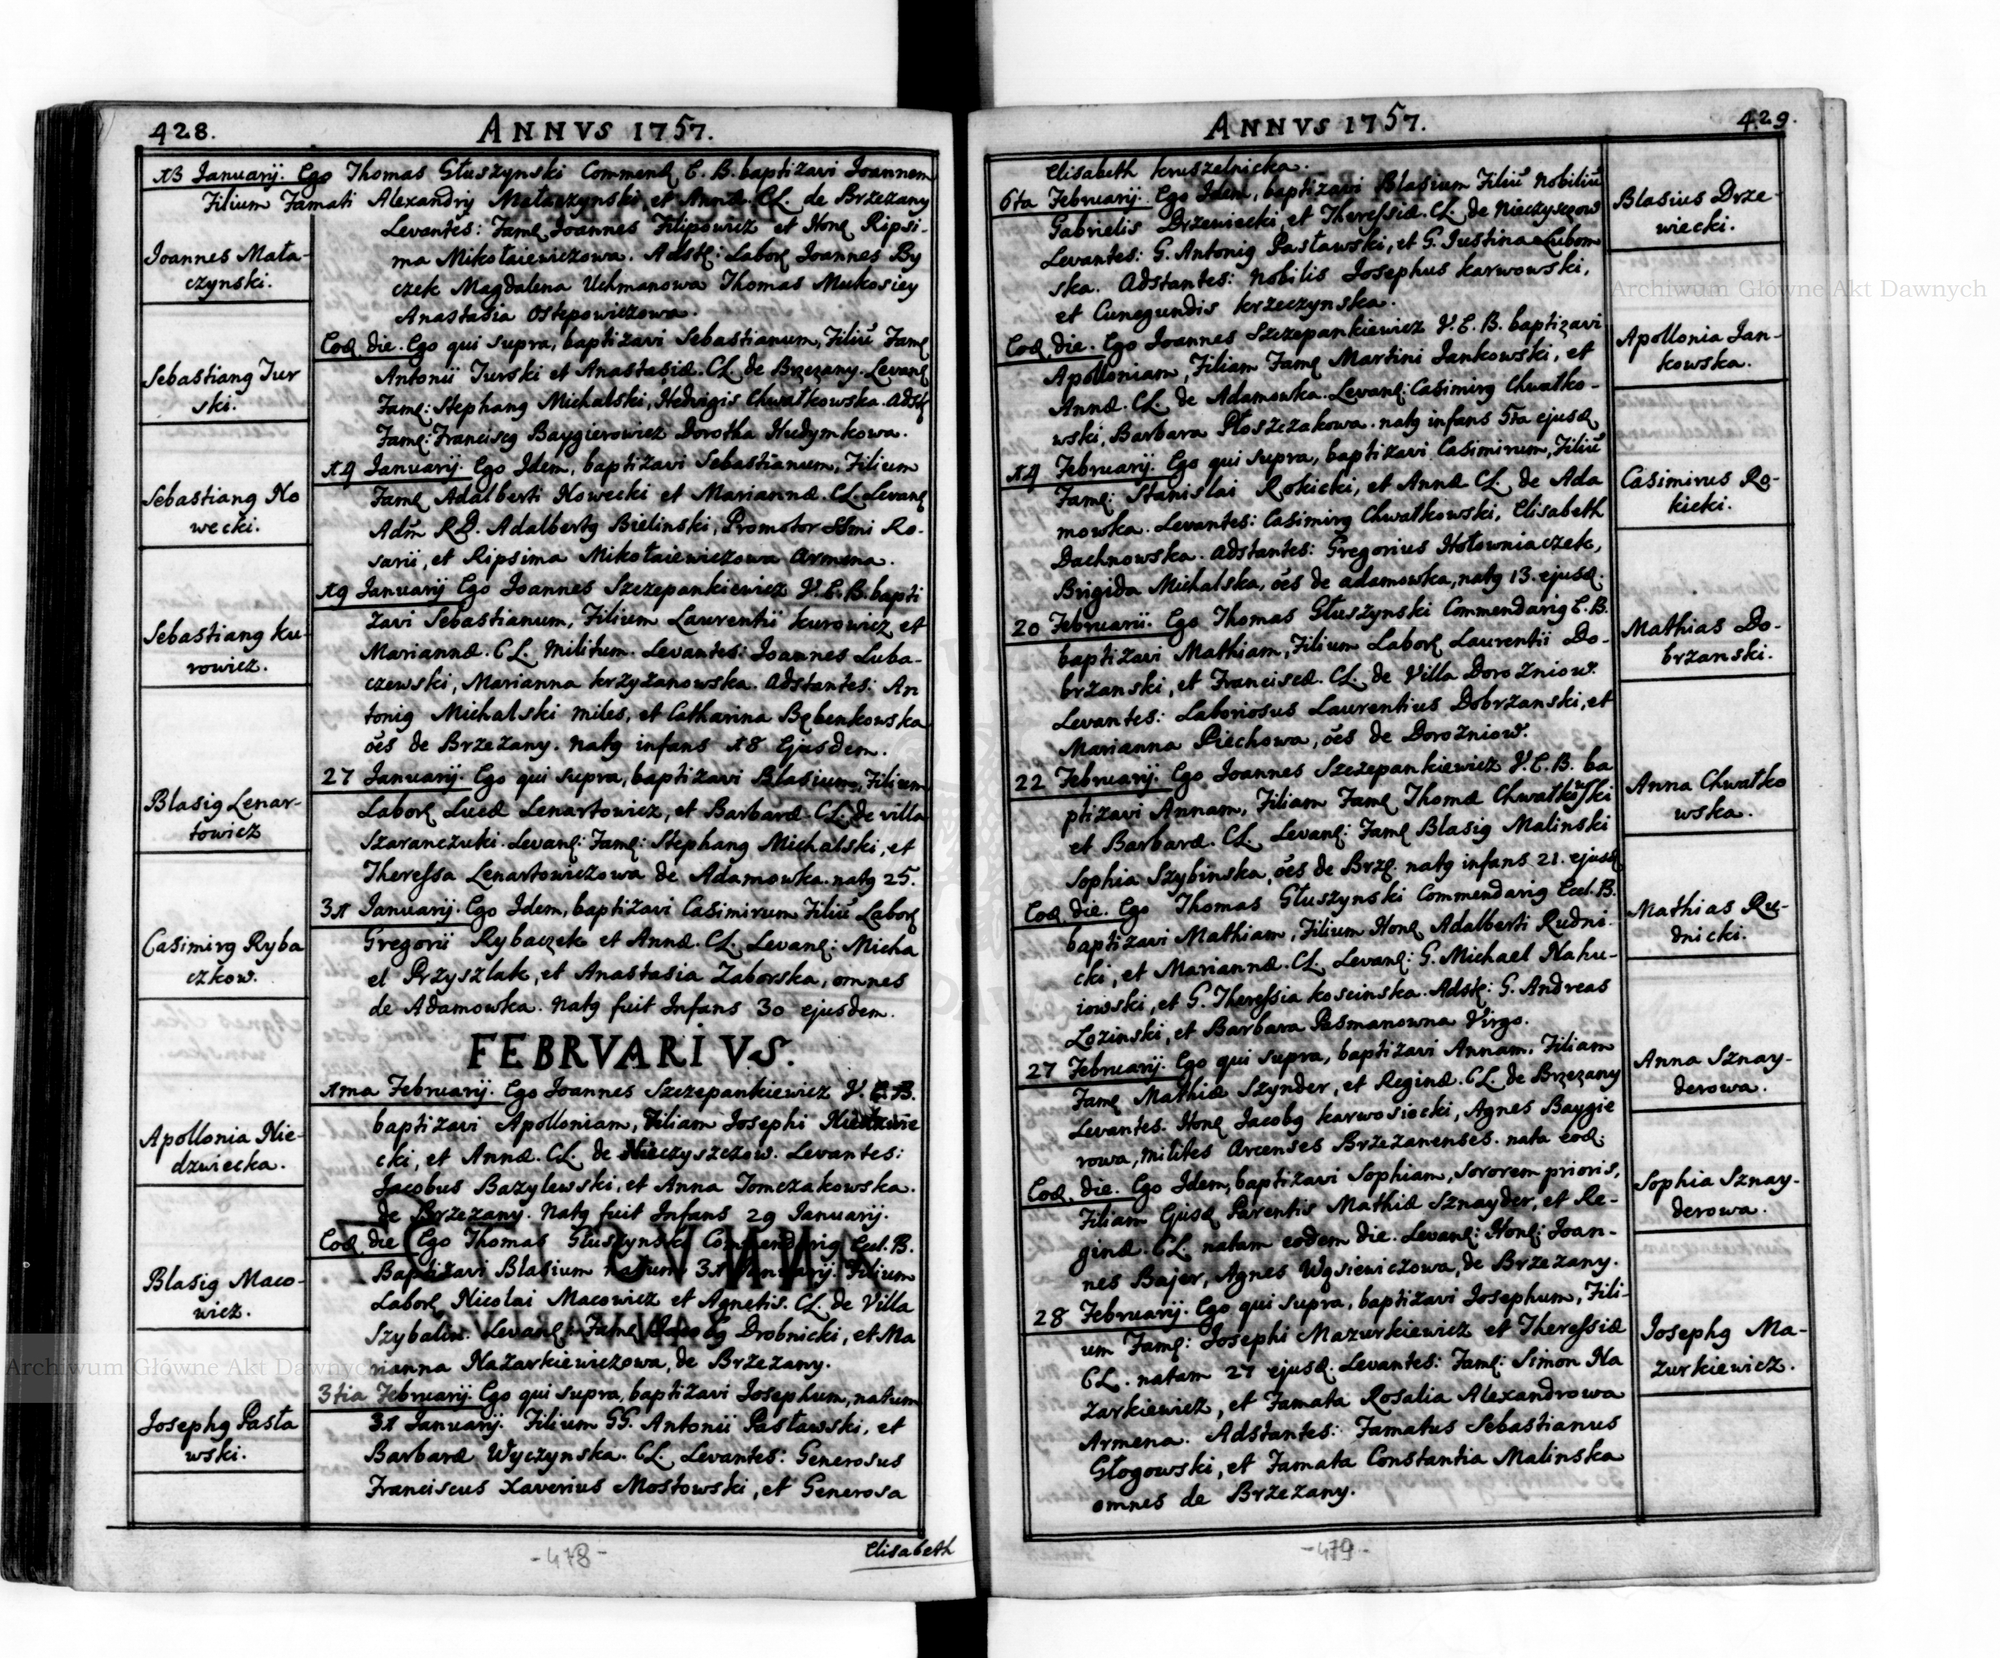 428.
ANNVS 1757.
13 Januarij. Ego Thomas Głuszynski Commend E. B. baptizavi Joannem
Filium Famati Alexandrij Małaczynski et Annæ. CL. de Brzezany
Levantes: Fam Joannes Filipowicz et Hon Ripsi-
ma Mikołaiewiczowa. Adst: Labor Joannes By
czek Magdalena Uchmanowa Thomas Mukosiey
Anastasia Ostepowiczowa.
Joannes Mała-
czynski.
Eod die. Ego qui supra, baptizavi Sebastianum, Filiū Fam
Antonii Turski et Anastasiæ. CL. de Brzezany. Levan
Fam: Stephanq Michalski, Hedvigis Chwałkowska. Adst
Fam: Franciscq Baygierowicz Dorotha Hudymkowa.
Sebastianq Tur
ski.
19 Januarij. Ego Idem, baptizavi Sebastianum, Filium
Fam Adalberti Nowecki et Mariannæ. CL. Levan
Adm RD. Adalbertq Bielinski, Promotor SSmi Ro-
sarii, et Ripsima Mikołaiewiczowa Armena.
Sebastianq No
wecki.
19 Januarij Ego Joannes Szczepankiewicz V. E. B. bapti
zavi Sebastianum, Filium Laurentii Kurowicz et
Mariannæ. CL. Militum. Levantes: Joannes Luba-
czewski, Marianna Krzyżanowska. Adstantes: An
toniq Michalski miles, et Catharina Bębenkowska
ōēs de Brzezany. natq infans 18 Ejusdem.
Sebastianq Ku-
rowicz.
27 Januarij. Ego qui supra, baptizavi Blasium, Filium
Labor Lucæ Lenartowicz, et Barbaræ. CL. de villa
Szaranczuki. Levan: Fam: Stephanq Michalski, et
Theressa Lenartowiczowa de Adamowka. natq 25.
Blasiq Lenar-
towicz
31 Januarij. Ego Idem, baptizavi Casimirum Filiū Labor
Gregorii Rybaczek et Annæ. CL. Levan: Micha
el Przyszlak, et Anastasia Zaborska, omnes
de Adamowka. Natq fuit Infans 30 ejusdem.
Casimirq Ryba
czkow.
FEBRVARIVS.
1ma Februarij. Ego Joannes Szczepankiewicz V. E. B.
baptizavi Apolloniam, Filiam Josephi Niedzwie
cki, et Annæ. CL. de Nieczyszczow. Levantes:
Jacobus Bazylewski, et Anna Tomczakowska.
de Brzezany. Natq fuit Infans 29 Januarij.
Apollonia Nie-
dzwiecka.
Eod die Ego Thomas Głuszynski Commendariq Eccl. B.
Baptizavi Blasium natum 31 Januarij. Filium
Labor Nicolai Macowicz et Agnetis. CL. de Villa
Szybalin. Levan: Fam Jacobq Drobnicki, et Ma
rianna Nazarkiewiczowa, de Brzezany.
Blasiq Maco-
wicz.
3tia Februarij. Ego qui supra, baptizavi Josephum, natum
31 Januarij. Filium GG. Antonii Pasławski, et
Barbaræ Wyczynska. CL. Levantes: Generosus
Franciscus Xaverius Mostowski, et Generosa
Josephq Pasła
wski.
Elisabeth
-478-
ANNVS 1757.
429.
Elisabeth Kruszelnicka.
6ta Februarij. Ego Idem, baptizavi Blasium Filiū Nobiliū
Gabrielis Drzewiecki, et Theressiæ. CL. de Nieczyszow
Levantes: G. Antoniq Pasławski, et G. Justina Lubom
ska. Adstantes: Nobilis Josephus Karwowski,
et Cunegundis Krzeczynska.
Blasius Drze-
wiecki.
Eod die. Ego Joannes Szczepankiewicz V. E. B. baptizavi
Apolloniam, Filiam Fam Martini Jankowski, et
Annæ. CL. de Adamowka. Levan: Casimirq Chwałko-
wski, Barbara Płoszczakowa. natq infans 5ta ejusd
Apollonia Jan-
kowska.
19 Februarij. Ego qui supra, baptizavi Casimirum, Filiū
Fam: Stanislai Rokicki, et Annæ CL. de Ada
mowka. Levantes: Casimirq Chwałkowski, Elisabeth
Dachnowska. Adstantes: Gregorius Hołowniaczek,
Brigida Michalska, ōēs de adamowka, natq 13. ejusd.
Casimirus Ro-
kicki.
20 Februarii. Ego Thomas Głuszynski Commendariq E. B.
baptizavi Mathiam, Filium Labor Laurentii Do-
brzanski, et Franciscæ. CL. de Villa Dorozniow.
Levantes: Laboriosus Laurentius Dobrzanski, et
Marianna Piechowa, ōēs de Dorozniow.
Mathias Do-
brzanski.
22 Februarij. Ego Joannes Szczepankiewicz V. E. B. ba
ptizavi Annam, Filiam Fam Thomæ Chwałkowski
et Barbaræ. CL. Levan: Fam Blasiq Malinski
Sophia Szybinska, ōēs de Brze. natq infans 21. ejusd
Anna Chwałko
wska.
Eod die. Ego Thomas Głuszynski Commendariq Eccl. B.
baptizavi Mathiam, Filium Hon Adalberti Rudni-
cki, et Mariannæ. CL. Levan: G. Michael Nahu-
iowski, et G. Theressia Koscinska. Adst: G. Andreas
Lozinski, et Barbara Pasmanowna Virgo.
Mathias Ru-
dnicki.
27 Februarij. Ego qui supra, baptizavi Annam, Filiam
Fam Mathiæ Sznyder, et Reginæ. CL. de Brzezany
Levantes. Hon Jacobq Karwosiecki, Agnes Baygie
rowa, Milites Arcenses Brzezanenses. nata eod.
Anna Sznay-
derowa.
Eod die. Ego Idem, baptizavi Sophiam, sororem prioris,
Filiam Ejusd Parentis Mathiæ Sznayder, et Re-
ginæ. CL. natam eodem die. Levan: Hon: Joan-
nes Bajer, Agnes Wąsiewiczowa, de Brzezany.
Sophia Sznay-
derowa.
28 Februarij. Ego qui supra, baptizavi Josephum, Fili-
um Fam: Josephi Mazurkiewicz et Theressiæ
CL. natam 27 ejusd. Levantes: Fam: Simon Na
zarkiewicz, et Famata Rosalia Alexandrowa
Armena. Adstantes: Famatus Sebastianus
Głogowski, et Famata Constantia Malinska
omnes de Brzezany.
Josephq Ma-
zurkiewicz.
-479-
Archiwum Główne Akt Dawnych
Archiwum Główne Akt Dawnych